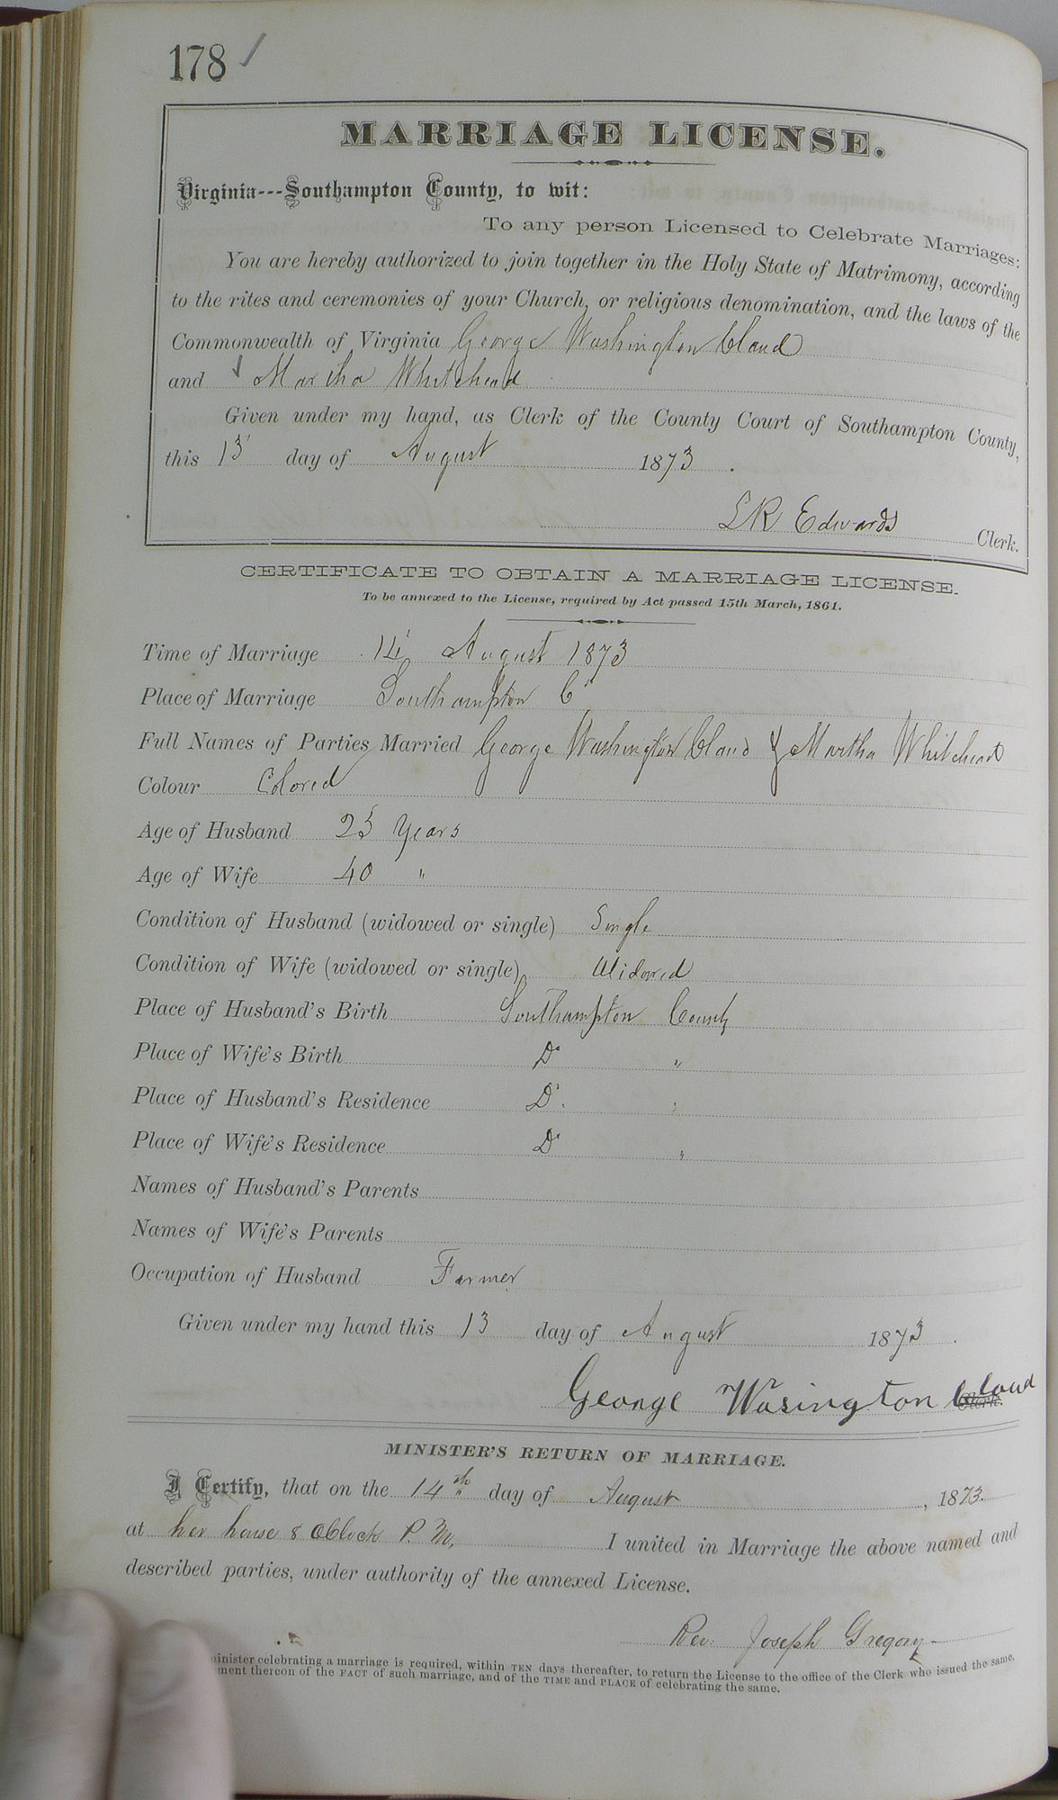 178 ✓
MARRIAGE LICENSE.
Virginia---Southampton County, to wit:
To any person Licensed to Celebrate Marriages:
You are hereby authorized to join together in the Holy State of Matrimony, according
to the rites and ceremonies of your Church, or religious denomination, and the laws of the
Commonwealth of Virginia George Washington Cloud
and Martha Whitehead
Given under my hand, as Clerk of the County Court of Southampton County,
this 13 day of August 1873.
L R Edwards Clerk.
CERTIFICATE TO OBTAIN A MARRIAGE LICENSE.
To be annexed to the License, required by Act passed 15th March, 1861.
Time of Marriage 14 August 1873
Place of Marriage Southampton Co
Full Names of Parties Married George Washington Cloud & Martha Whitehead
Colour Colored
Age of Husband 25 Years
Age of Wife 40 "
Condition of Husband (widowed or single) Single
Condition of Wife (widowed or single) Widowed
Place of Husband's Birth Southampton County
Place of Wife's Birth Do "
Place of Husband's Residence Do. "
Place of Wife's Residence Do "
Names of Husband's Parents
Names of Wife's Parents
Occupation of Husband Farmer
Given under my hand this 13 day of August 1873.
George Wasington Cloud Clerk.
MINISTER'S RETURN OF MARRIAGE.
I Certify, that on the 14th day of August, 1873.
at her house 8 Oclock P. M. I united in Marriage the above named and
described parties, under authority of the annexed License.
Rev. Joseph Gregory
inister celebrating a marriage is required, within TEN days thereafter, to return the License to the office of the Clerk who issued the same,
ment thereon of the FACT of such marriage, and of the TIME and PLACE of celebrating the same.